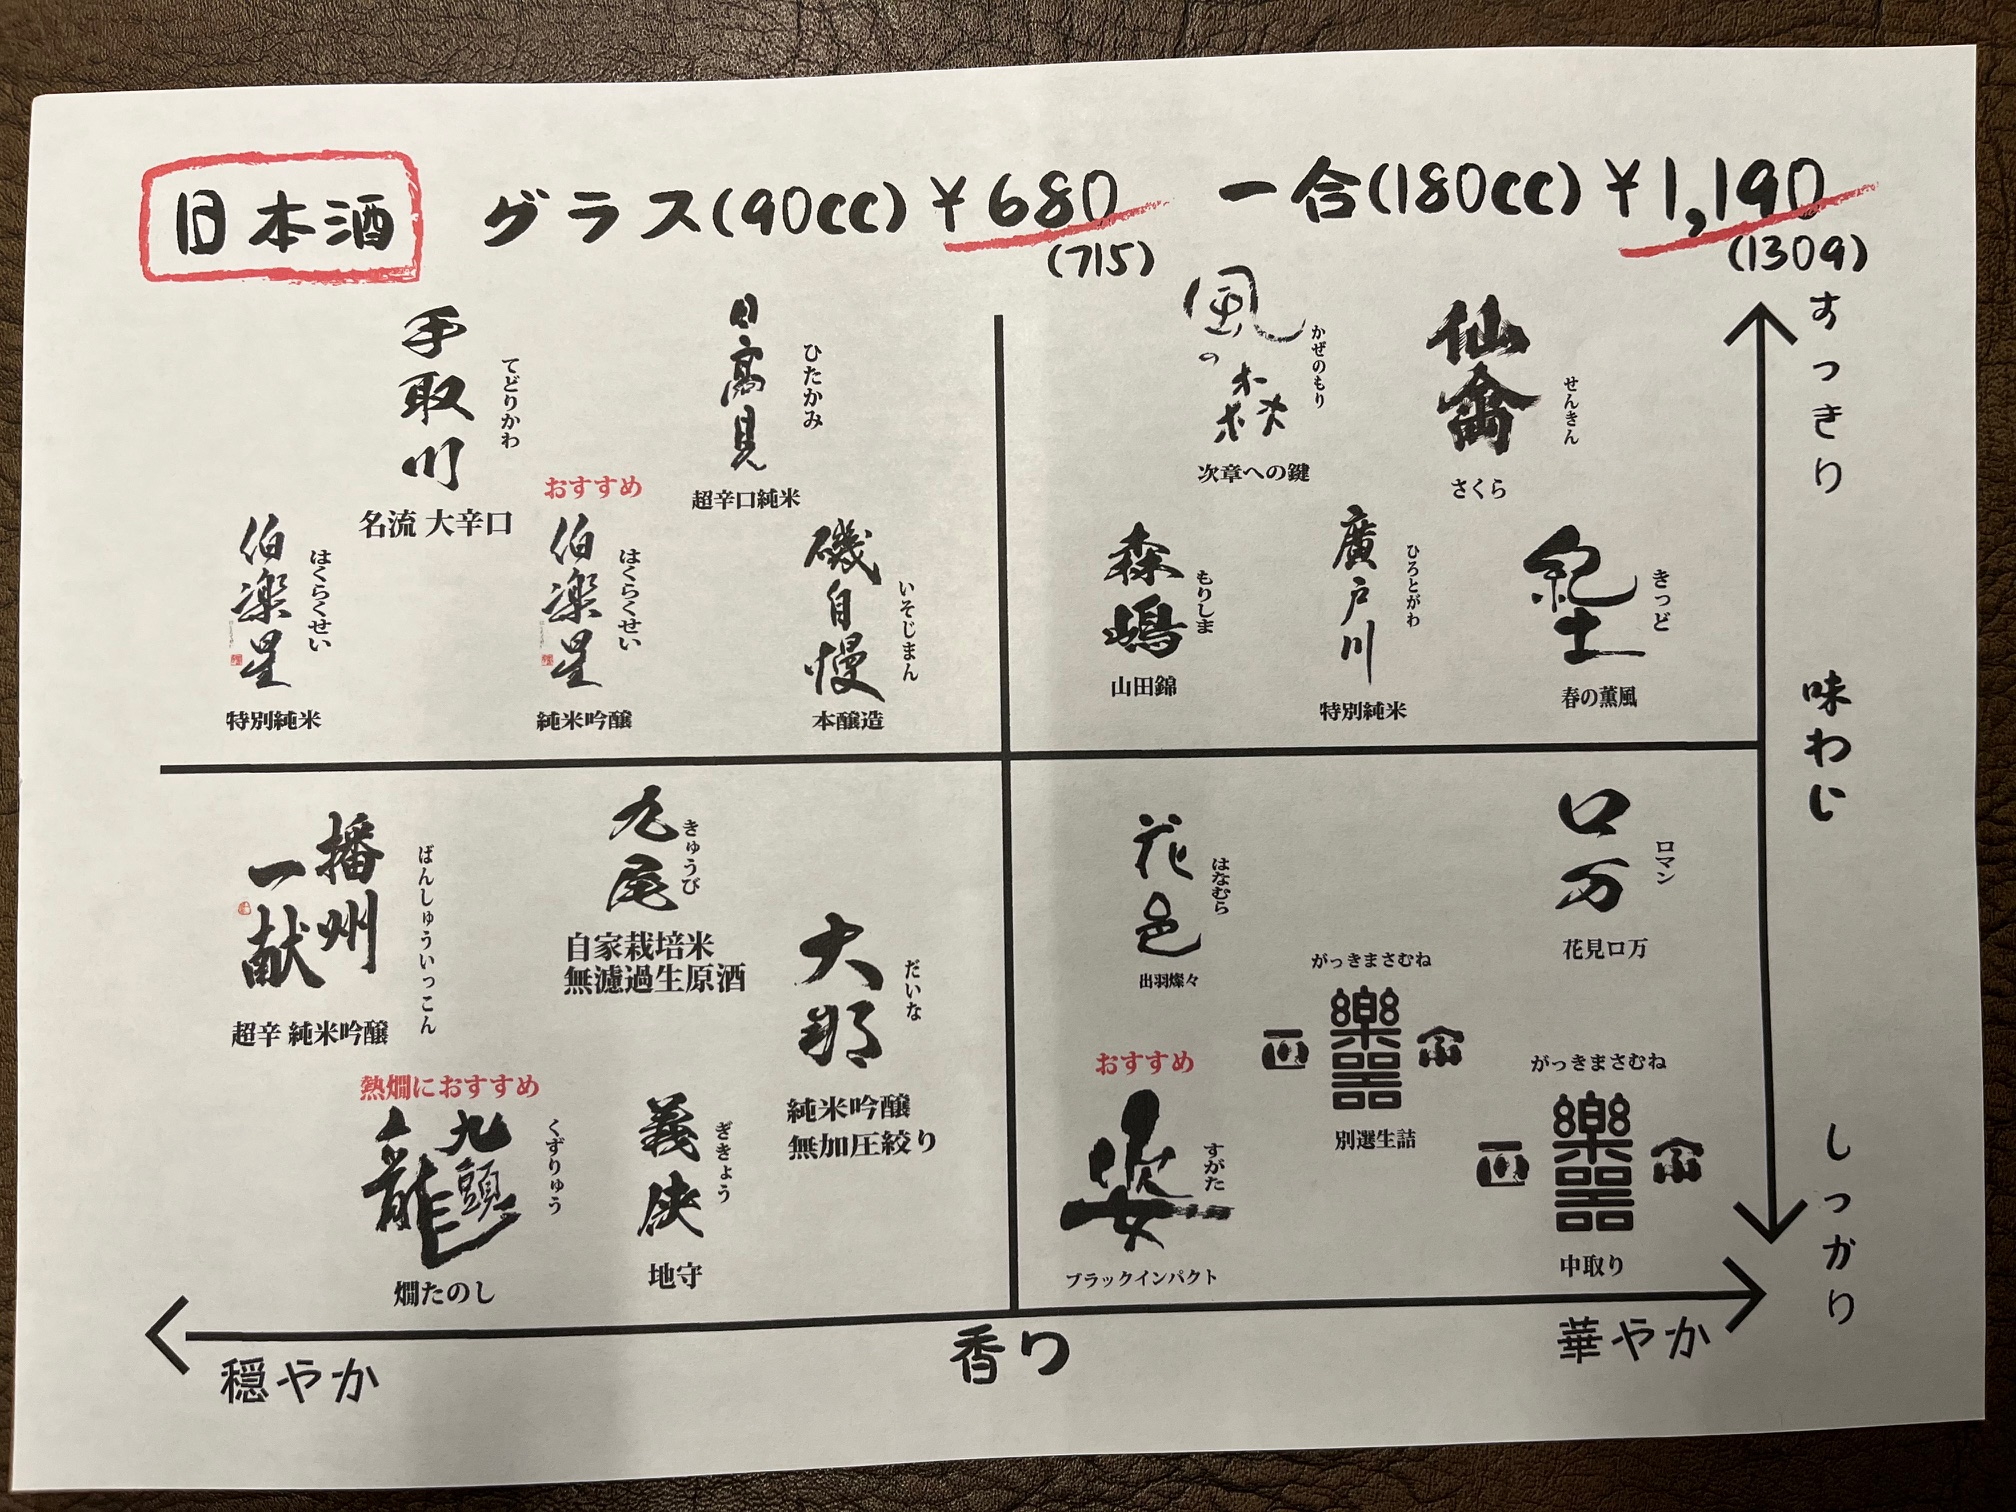 日本酒 グラス(90cc)¥680 一合(180cc)¥1,190
(715) (1309)
手取川
てどりかわ
名流 大辛口
日高見
ひたかみ
超辛口純米
伯楽星
はくらくせい
特別純米
おすすめ
伯楽星
はくらくせい
純米吟醸
磯自慢
いそじまん
本醸造
風の森
かぜのもり
次章への鍵
仙禽
せんきん
さくら
森嶋
もりしま
山田錦
廣戸川
ひろとがわ
特別純米
紀土
きっど
春の薫風
播州
一献
ばんしゅういっこん
超辛 純米吟醸
九尾
きゅうび
自家栽培米
無濾過生原酒
大那
だいな
純米吟醸
無加圧絞り
熱燗におすすめ
九頭龍
くずりゅう
燗たのし
義侠
ぎきょう
地守
花邑
はなむら
出羽燦々
ロ万
ロマン
花見ロ万
がっきまさむね
樂器正宗
別選生詰
おすすめ
姿
すがた
ブラックインパクト
がっきまさむね
樂器正宗
中取り
すっきり
味わい
しっかり
穏やか
香り
華やか